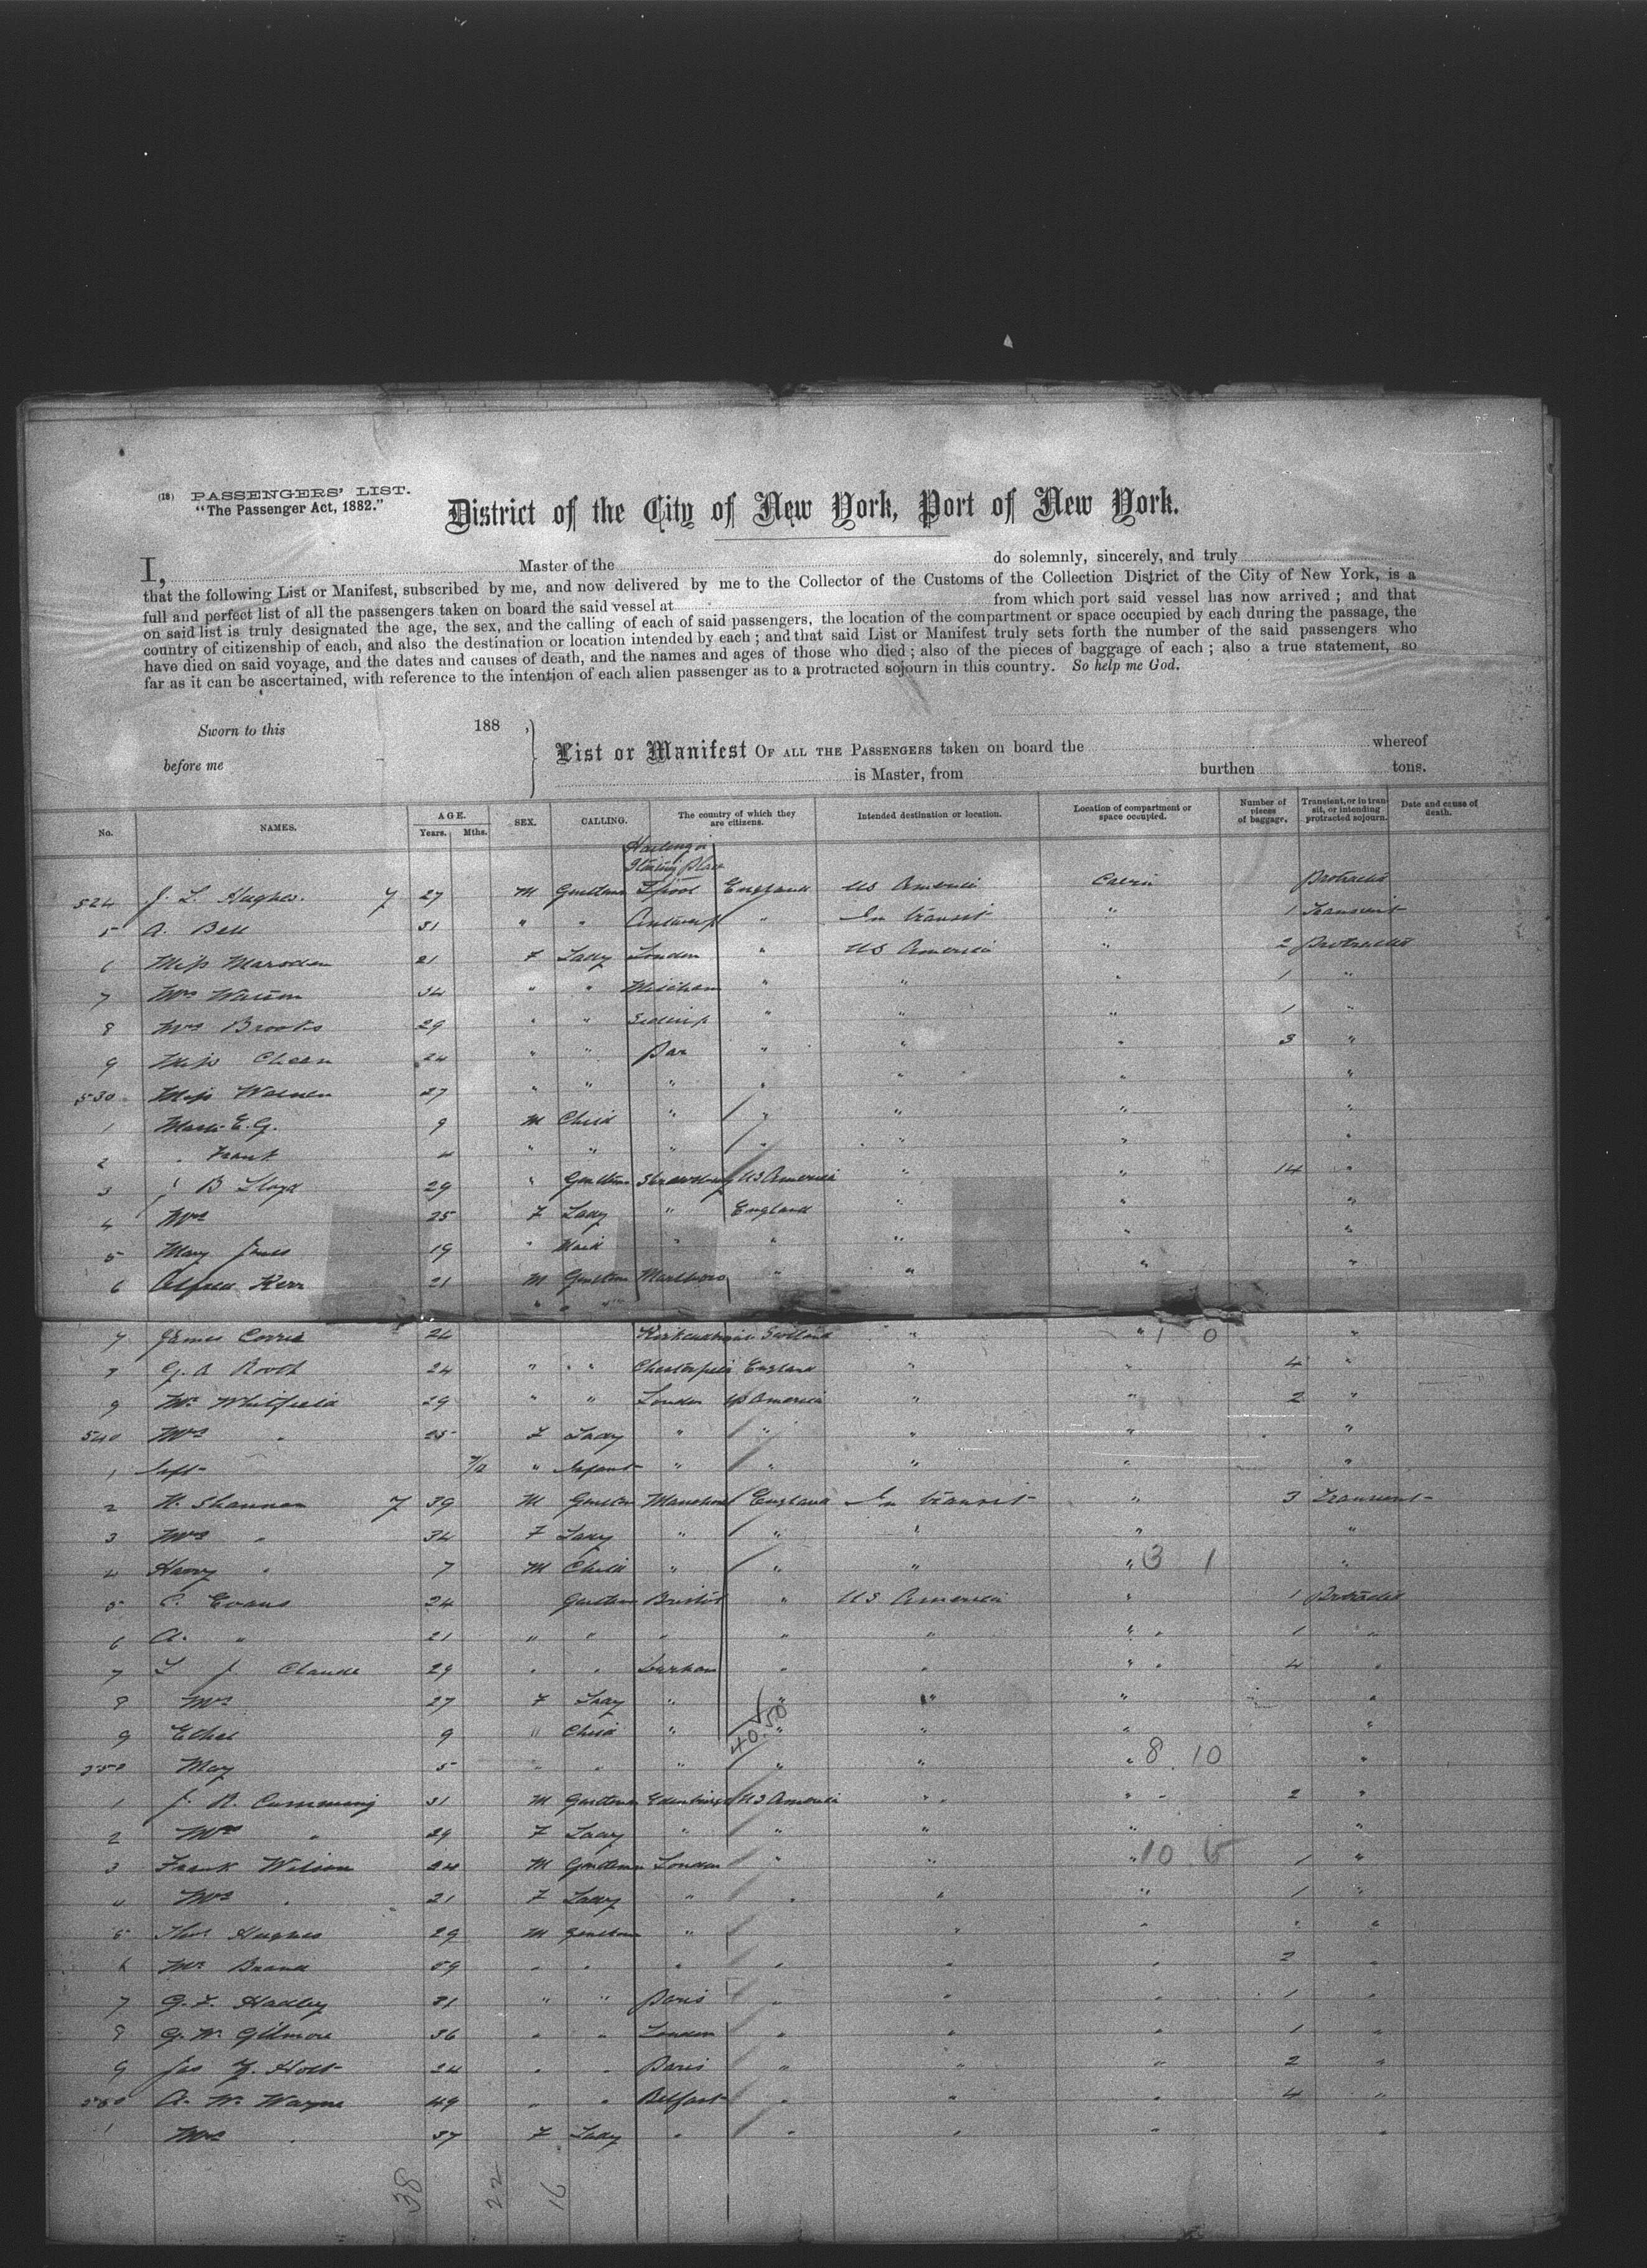 (18) PASSENGERS' LIST.
"The Passenger Act, 1882."
District of the City of New York, Port of New York.
I, Master of the do solemnly, sincerely, and truly
that the following List or Manifest, subscribed by me, and now delivered by me to the Collector of the Customs of the Collection District of the City of New York, is a
full and perfect list of all the passengers taken on board the said vessel at from which port said vessel has now arrived; and that
on said list is truly designated the age, the sex, and the calling of each of said passengers, the location of the compartment or space occupied by each during the passage, the
country of citizenship of each, and also the destination or location intended by each; and that said List or Manifest truly sets forth the number of the said passengers who
have died on said voyage, and the dates and causes of death, and the names and ages of those who died; also of the pieces of baggage of each; also a true statement, so
far as it can be ascertained, with reference to the intention of each alien passenger as to a protracted sojourn in this country. So help me God.
Sworn to this 188 ,
before me
List or Manifest OF ALL THE PASSENGERS taken on board the whereof
is Master, from burthen tons.
No. NAMES. AGE. Years. Mths. SEX. CALLING. The country of which they are citizens. Intended destination or location. Location of compartment or space occupied. Number of pieces of baggage. Transient, or in transit, or intending protracted sojourn. Date and cause of death.
Place
524 J. L. Hughes. 27 M Gentleman L'pool England US America Cabin Protracted
5 A. Bell 31 " " Antwerp " In transit " 1 Transient
6 Miss Marsden 21 F Lady London " US America " 2 Protracted
7 Mrs 34 " " " " " 1 "
8 Mrs Brooks 29 " " " " " 1 "
9 Miss 24 " " " " " 3 "
530 Miss 27 " " " " " " "
1 E. G. 9 M Child " " " " "
2 " Frank 4 " " " " " " "
3 J B Lloyd 29 " Gentleman US America " " 14 "
4 Mrs 25 F Lady " England " " "
5 Mary Jones 19 " Maid " " " " "
6 Alfred Kerr 21 M Gentleman " " " "
7 James Corrie 24 " " Scotland " " 1 0 "
8 G. A. Booth 24 " " Chesterfield England " " 4 "
9 Mr Whitfield 29 " " London US America " " 2 "
540 Mrs " 25 F Lady " " " " "
1 Inft " Infant " " " " "
2 H. Shannon 39 M Gentleman England In transit " 3 Transient
3 Mrs " 34 F Lady " " " " "
4 Harry " 7 M Child " " " " 3 1 "
5 C. Evans 24 Gentleman Bristol " US America " 1 Protracted
6 A. " 21 " " " " " " 1 "
7 L J Claude 29 " " Durham " " " 4 "
8 Mrs 27 F Lady " " " " "
9 Ethel 9 " Child " " " " "
40.50
550 May 5 " " " " " " 8 10 "
1 J. R. Cumming 31 M Gentleman Edinburgh US America " " 2 "
2 Mrs " 29 F Lady " " " " "
3 Frank Wilson 24 M Gentleman London " " " 10 1 "
4 Mrs " 21 F Lady " " " " 1 "
5 Thos Hughes 29 M Gentleman " " " " "
6 Mr " " " " " " 2 "
7 G. F. Hadley 31 " " Paris " " " 1 "
8 G. W. Gilmore 36 " " London " " " 1 "
9 Jas Holt 24 " " Paris " " " 2 "
560 A. W. Wayne 49 " " Belfast " " " 4 "
1 Mrs " 37 F Lady " " " " "
38 22 16